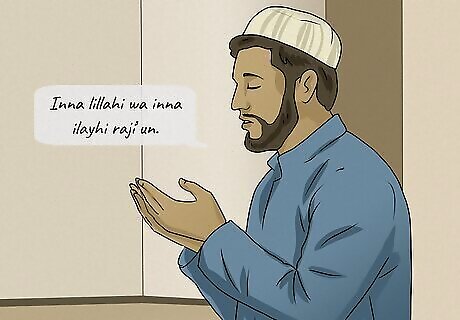 Inna lillahi wa inna
ilayhi raji'un.